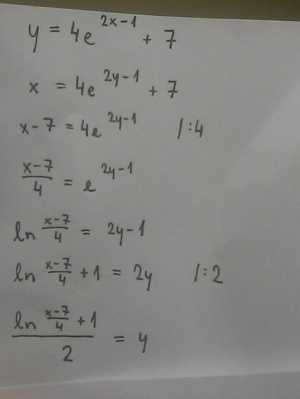 y = 4e^{2x-1} + 7
x = 4e^{2y-1} + 7
x-7 = 4e^{2y-1} /:4
\frac{x-7}{4} = e^{2y-1}
ln \frac{x-7}{4} = 2y-1
ln \frac{x-7}{4} + 1 = 2y /:2
\frac{ln \frac{x-7}{4} + 1}{2} = y